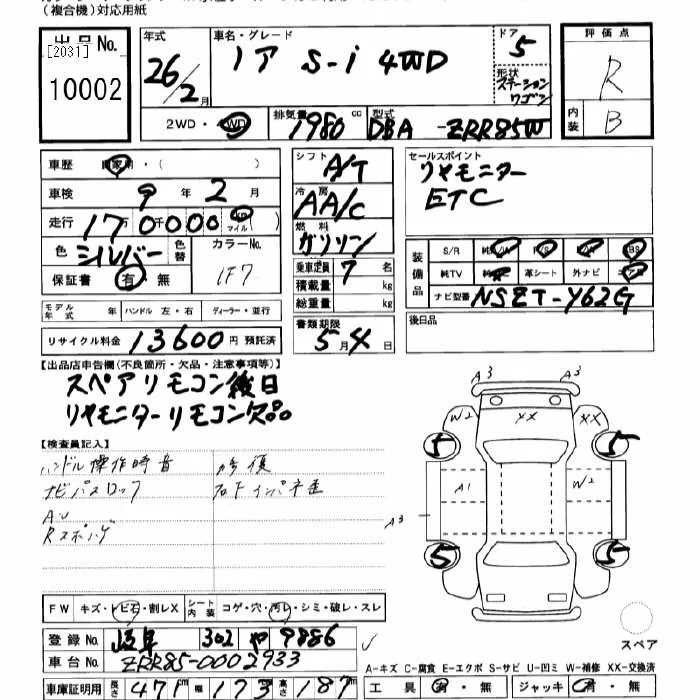 （複合機）対応用紙
出品No.
[2031]
10002
年式
26/2月
車名・グレード
ノア S-i 4WD
ドア
5
形状
ステーション
ワゴン
評価点
R
内装
B
2WD・4WD
排気量 1980 cc
型式 DBA-ZRR85W
車歴 自家用・（ ）
車検 9年 2月
走行 170千000 km マイル（ ）
色 シルバー 色替
カラーNo. 1F7
保証書 有・無
シフト A/T
冷房 AA/C
燃料 ガソリン
乗車定員 7 名
積載量 kg
総重量 kg
セールスポイント
リヤモニター
ETC
装備品
S/R
純TV 革シート 外ナビ
ナビ型番 NSZT-Y62G
モデル年式 年 ハンドル 左・右 ディーラー・並行
リサイクル料金 13600円 預託済
書類期限
5月4日
後日品
【出品店申告欄（不良箇所・欠品・注意事項等）】
スペアリモコン後日
リヤモニターリモコン欠品
【検査員記入】
ハンドル操作時音
ナビパスロック
修復
A3 A3
W2 XX XX
5 5
A1 W2
A3
5 5
スペア
FW キズ・トビ石・割レX
シート内装 コゲ・穴・汚レ・シミ・破レ・スレ
登録No. 岐阜 302 や 9886
車台No. ZRR85-0002933
車庫証明用 長さ 471 cm 幅 173 高さ 187
A-キズ C-腐食 E-エクボ S-サビ U-凹ミ W-補修 XX-交換済
工具 有・無 ジャッキ 有・無